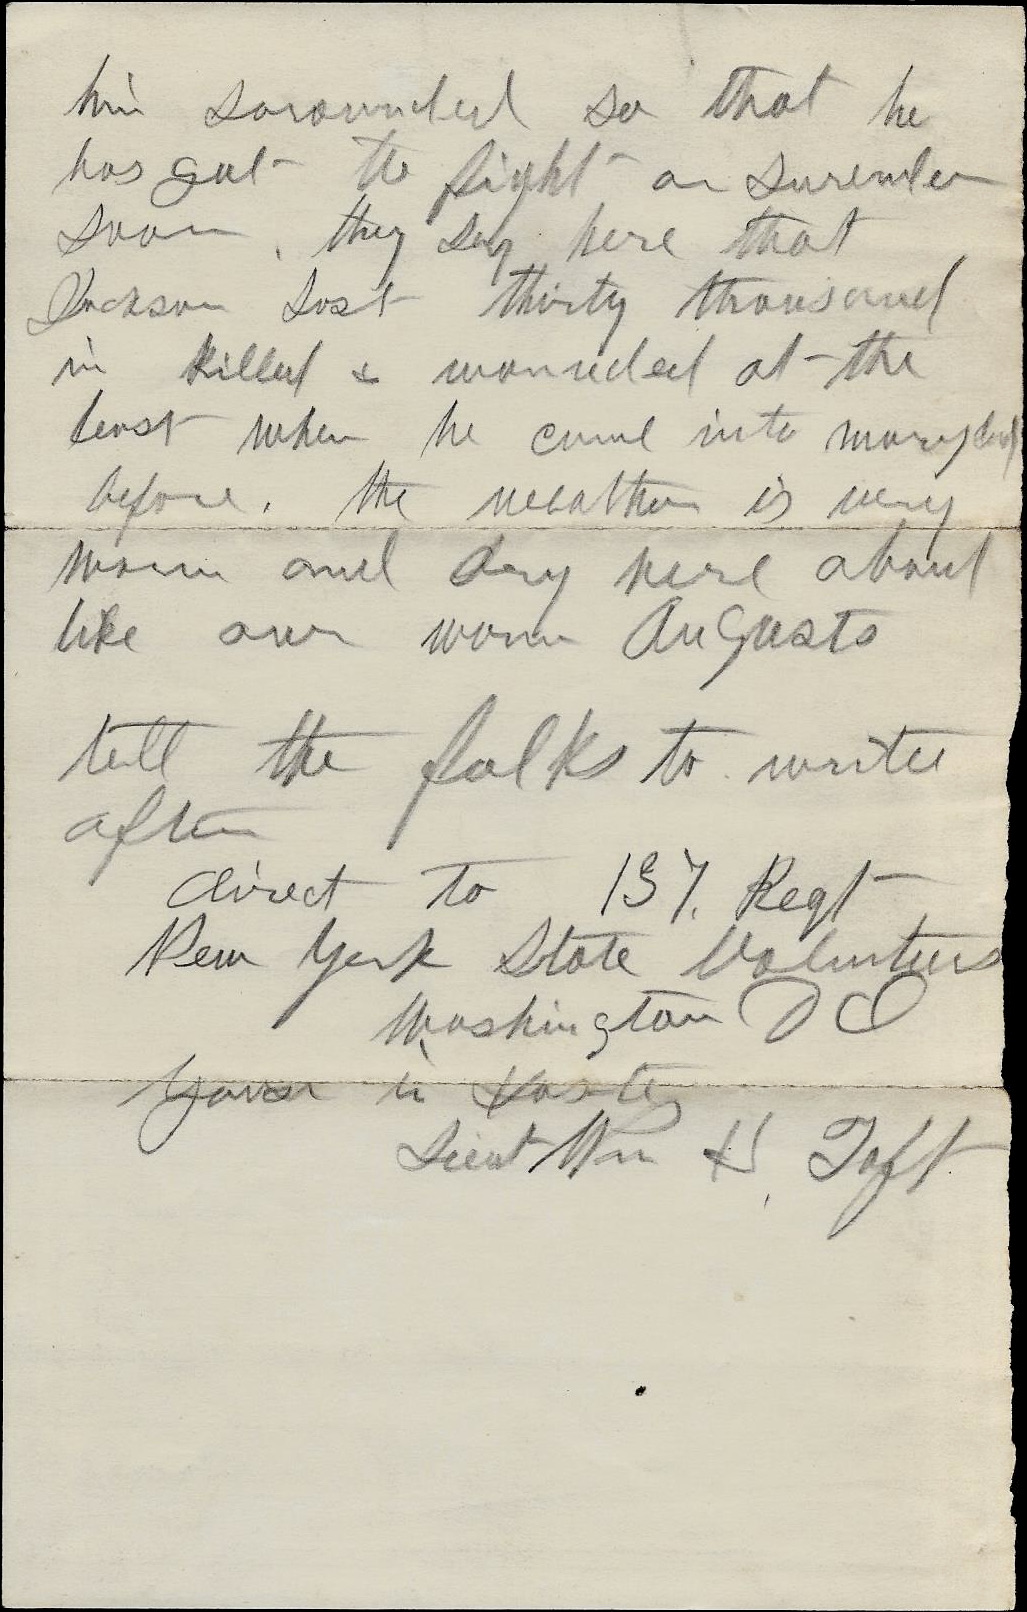 him sorounded so that he
has got to fight or surender
soon. they say here that
Jackson lost thirty thousand
in killed & wounded at the
least when he came into maryland
before. the weather is very
warm and dry here about
like our warm Augusts
tell the folks to write
often
direct to 137. Regt
New York State Volunteers
Washington D C
Yours in haste
Lieut Wm H. Taft